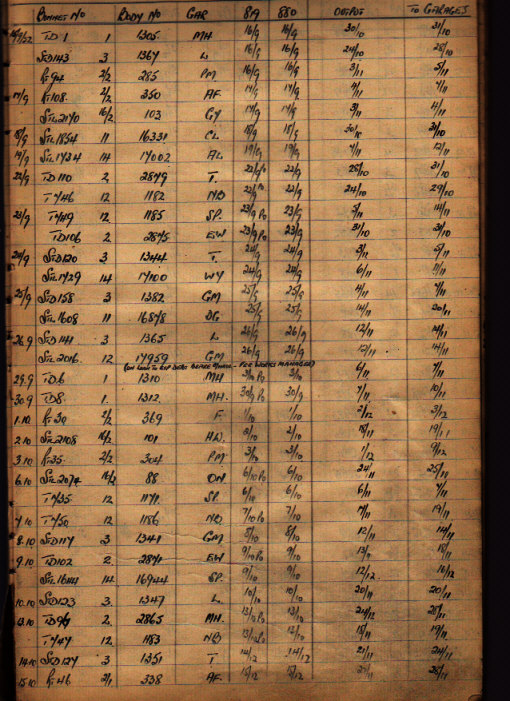 BONNET NO BODY NO GAR 819 880 OUTPUT TO GARAGES
TD 1 1 1305 MH 16/9 16/9 30/10 31/10
STD 143 3 1367 L 16/9 16/9 24/10 28/10
RT 94 2/2 285 PM 16/9 16/9 3/11 5/11
17/9 RT 108 2/2 350 AF 17/9 17/9 4/11
STL 2170 16/2 103 GY 3/11
18/9 STL 1854 11 16331 CL 18/9 18/9 30/10 31/10
19/9 STL 1424 14 17002 AL 19/9 19/9 12/11
22/9 TD 110 2 2879 T 22/9 28/10 31/10
1182 ND 24/10 29/10
23/9 12 1185 SP 23/9 Po 23/9 5/11 14/11
TD 106 2 2875 EW 23/9 Po 23/9 31/10 3/10
24/9 STD 120 3 1344 T 24/9 24/9 5/11
STL 1729 14 17100 WY 24/9 24/9 6/11
25/9 STD 158 3 1382 GM 25/9 25/9 4/11
STL 1608 11 16878 DG 25/9 25/9 14/11 20/11
26.9 STD 141 3 1365 L 26/9 26/9 12/11 14/11
STL 2016 12 17959 GM 26/9 26/9 14/11
(ON LOAN TO EXP DEPT BEFORE - FOR WORKS MANAGER)
29.9 TD 6 1 1310 MH 3/10 6/11
30.9 TD 8 1 1312 MH 30/9 Po 30/9 10/11
1.10 RT 30 2/2 369 F 1/10 1/10 2/12 3/12
2.10 STL 2108 16/2 101 HW 2/10 2/10 18/11 19/11
3.10 RT 35 2/2 304 PM 3/10 1/12 9/12
6.10 STL 2074 16/2 88 ON 6/10 Po 6/10 24/11 25/11
12 1171 SP 6/10 6/10 6/11
7.10 12 1186 ND 7/10 Po 7/10 19/11
8.10 STD 117 3 1341 GM 8/10 8/10 12/11 14/11
9.10 TD 102 2 2871 EW 9/10 Po 9/10 18/11
STL 1644 14 16944 SP 9/10 9/10 12/12 16/12
10.10 STD 123 3 1347 L 10/10 10/10 20/11 20/11
13.10 2 2865 MH 13/10 Po 13/10
12 1183 ND 13/10 Po 13/10 18/11 19/11
14.10 STD 127 3 1351 T 14/12 14/12 21/11 24/11
15.10 RT 46 2/1 338 AF 15/12 15/12